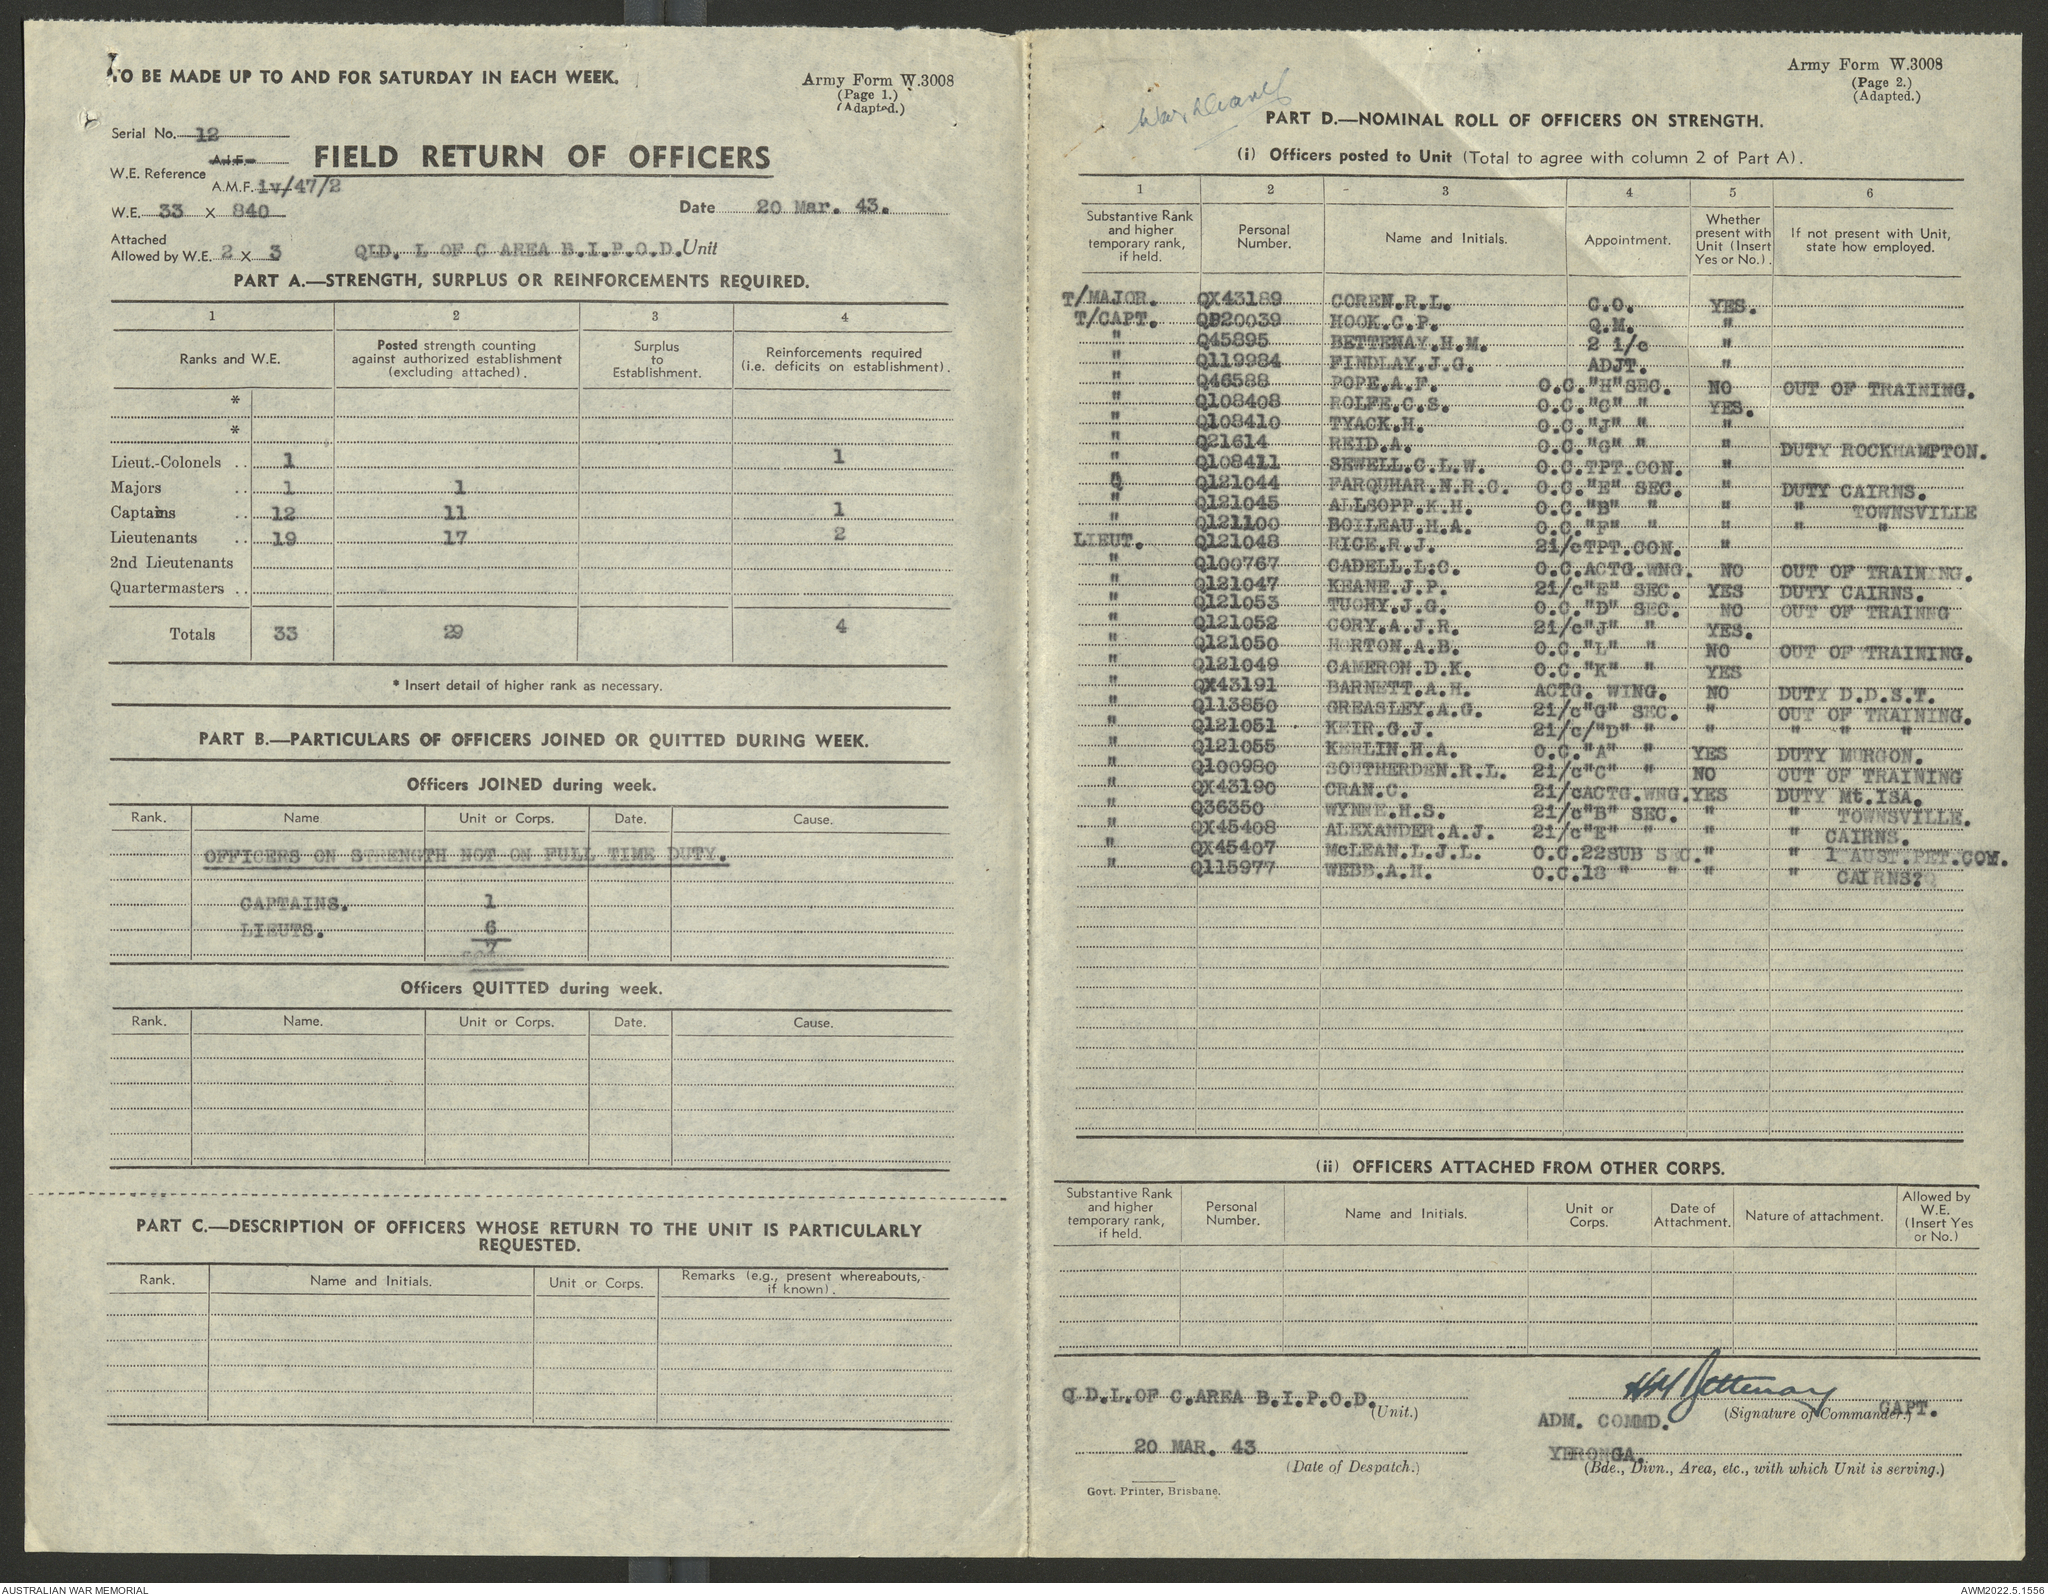 TO BE MADE UP TO AND FOR SATURDAY IN EACH WEEK.
Army Form W.3008
(Page 1.)
(Adapted.)
Serial No. 12
A.I.F.
W.E. Reference
A.M.F. iv/47/2
FIELD RETURN OF OFFICERS
W.E. 33 X 840
Date 20 Mar. 43.
Attached
Allowed by W.E. 2 X 3
QLD. L OF C AREA B.I.P.O.D. Unit
PART A.—STRENGTH, SURPLUS OR REINFORCEMENTS REQUIRED.
1 2 3 4
Ranks and W.E. | Posted strength counting against authorized establishment (excluding attached). | Surplus to Establishment. | Reinforcements required (i.e. deficits on establishment).
*
*
Lieut.-Colonels .. 1 1
Majors .. 1 1
Captains .. 12 11 1
Lieutenants .. 19 17 2
2nd Lieutenants
Quartermasters ..
Totals 33 29 4
* Insert detail of higher rank as necessary.
PART B.—PARTICULARS OF OFFICERS JOINED OR QUITTED DURING WEEK.
Officers JOINED during week.
Rank. Name Unit or Corps. Date. Cause.
OFFICERS ON STRENGTH NOT ON FULL TIME DUTY.
CAPTAINS. 1
LIEUTS. 6
7
Officers QUITTED during week.
Rank. Name. Unit or Corps. Date. Cause.
PART C.—DESCRIPTION OF OFFICERS WHOSE RETURN TO THE UNIT IS PARTICULARLY
REQUESTED.
Rank. Name and Initials. Unit or Corps. Remarks (e.g., present whereabouts, if known).
Army Form W.3008
(Page 2.)
(Adapted.)
PART D.—NOMINAL ROLL OF OFFICERS ON STRENGTH.
(i) Officers posted to Unit (Total to agree with column 2 of Part A).
1 2 3 4 5 6
Substantive Rank and higher temporary rank, if held. | Personal Number. | Name and Initials. | Appointment. | Whether present with Unit (Insert Yes or No.). | If not present with Unit, state how employed.
T/MAJOR. QX43189 COREN.R.L. C.O. YES.
T/CAPT. QP20039 HOOK.C.P. Q.M. "
" Q45895 BETTENAY.H.M. 2 i/c "
" Q119984 FINDLAY.J.G. ADJT. "
" Q46588 POPE.A.F. O.C."H"SEC. NO OUT OF TRAINING.
" Q108408 ROLFE.C.S. O.C."C" " YES.
" Q108410 TYACK.H. O.C."J" " "
" Q21614 REID.A. O.C."G" " " DUTY ROCKHAMPTON.
" Q108411 SEWELL.C.L.W. O.C.TPT.CON. "
Q Q121044 FARQUHAR.N.R.C. O.C."E" SEC. " DUTY CAIRNS.
" Q121045 ALLSOPP.K.H. O.C."B" " " " TOWNSVILLE
" Q121100 BOILEAU.H.A. O.C."F" " " " "
LIEUT. Q121048 RICE.R.J. 2i/cTPT.CON. "
" Q100767 CADELL.L.C. O.C.ACTG.WNG. NO OUT OF TRAINING.
" Q121047 KEANE.J.P. 2i/c"E" SEC. YES DUTY CAIRNS.
" Q121053 TUOHY.J.G. O.C."D" SEC. NO OUT OF TRAINNG
" Q121052 CORY.A.J.R. 2i/c"J" " YES.
" Q121050 HORTON.A.B. O.C."L" " NO OUT OF TRAINING.
" Q121049 CAMERON.D.K. O.C."K" " YES
" QX43191 BARNETT.A.H. ACTG. WING. NO DUTY D.D.S.T.
" Q113850 GREASLEY.A.G. 2i/c"G" SEC. " OUT OF TRAINING.
" Q121051 KEIR.G.J. 2i/c/"D" " " " " "
" Q121055 KERLIN.H.A. O.C."A" " YES DUTY MURGON.
" Q100980 SOUTHERDEN.R.L. 2i/c"C" " NO OUT OF TRAINING
" QX43190 CRAN.C. 2i/cACTG.WNG.YES DUTY Mt.ISA.
" Q36350 WYNNE.H.S. 2i/c"B" SEC. " " TOWNSVILLE.
" QX45408 ALEXANDER.A.J. 2i/c"E" " " " CAIRNS.
" QX45407 McLEAN.L.J.L. O.C.22SUB SEC." " 1 AUST.PET.COY.
" Q115977 WEBB.A.H. O.C.18 " " " " CAIRNS?
(ii) OFFICERS ATTACHED FROM OTHER CORPS.
Substantive Rank and higher temporary rank, if held. | Personal Number. | Name and Initials. | Unit or Corps. | Date of Attachment. | Nature of attachment. | Allowed by W.E. (Insert Yes or No.)
Q.D.L.OF C.AREA B.I.P.O.D.
(Unit.)
HM Bettenay
CAPT.
ADM. COMMD.
(Signature of Commander.)
20 MAR. 43
(Date of Despatch.)
YERONGA.
(Bde., Divn., Area, etc., with which Unit is serving.)
Govt. Printer, Brisbane.
AUSTRALIAN WAR MEMORIAL
AWM2022.5.1556